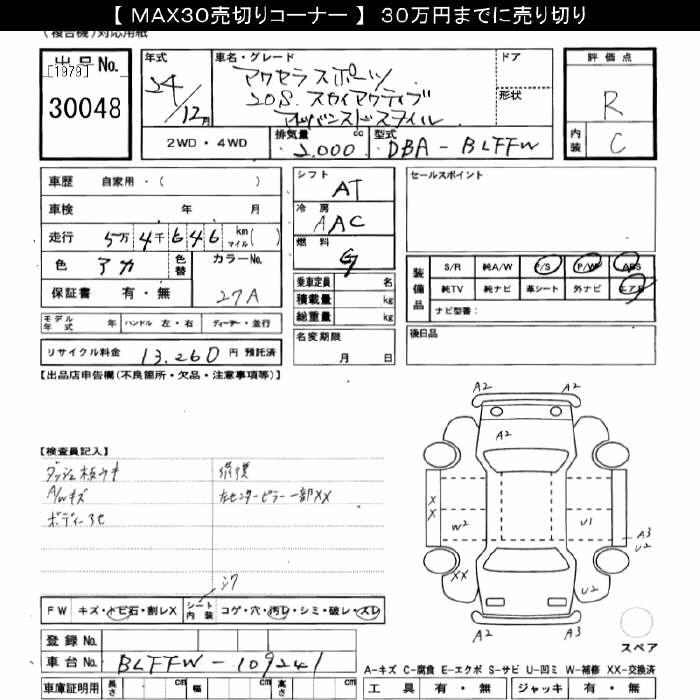 【 MAX30売切りコーナー 】 30万円までに売り切り
(複合機)対応用紙
出品No.
[1979]
30048
年式
24/12月
車名・グレード
アクセラスポーツ
20S スカイアクティブ
ドア
形状
評価点
R
内装
C
2WD・4WD
排気量
2,000 cc
型式
DBA - BLFFW
車歴 自家用・( )
車検 年 月
走行 5万4千646 km マイル( )
色 アカ
色替
カラーNo.
27A
保証書 有・無
シフト
AT
冷房
AAC
燃料
G
乗車定員 名
積載量 kg
総重量 kg
セールスポイント
装備品
S/R 純A/W P/S P/W ABS
純TV 純ナビ 革シート 外ナビ エアB
ナビ型番:
モデル年式 年 ハンドル 左・右 ディーラー・並行
リサイクル料金 13,260 円 預託済
名変期限
月 日
後日品
【出品店申告欄(不良箇所・欠品・注意事項等)】
【検査員記入】
A/Wキズ
修復
左センターピラー一部XX
シワ
A2
A2
A2
X
X
W2
U1
A3
U2
XX
U2
A2
A3
スペア
FW キズ・トビ石・割レX シート内装 コゲ・穴・汚レ・シミ・破レ・スレ
登録No.
車台No. BLFFW - 109241
車庫証明用 長さ cm 幅 cm 高さ cm
A-キズ C-腐食 E-エクボ S-サビ U-凹ミ W-補修 XX-交換済
工具 有・無 ジャッキ 有・無